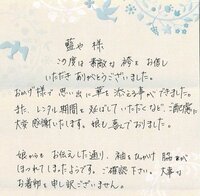 藍や 様
この度は 素敵な 袴を お貸し
いただき ありがとうございました。
おかげ様で 思い出に 華を 添える事ができました。
また、レンタル期間を 延ばしていただくなど、ご配慮に
大変 感謝いたします。娘も 喜んでおりました。
娘からも お伝えした通り、袖をひっかけ 脇が
ほつれて しまったようです。ご確認下さい。大事な
お着物を 申し訳ございません。